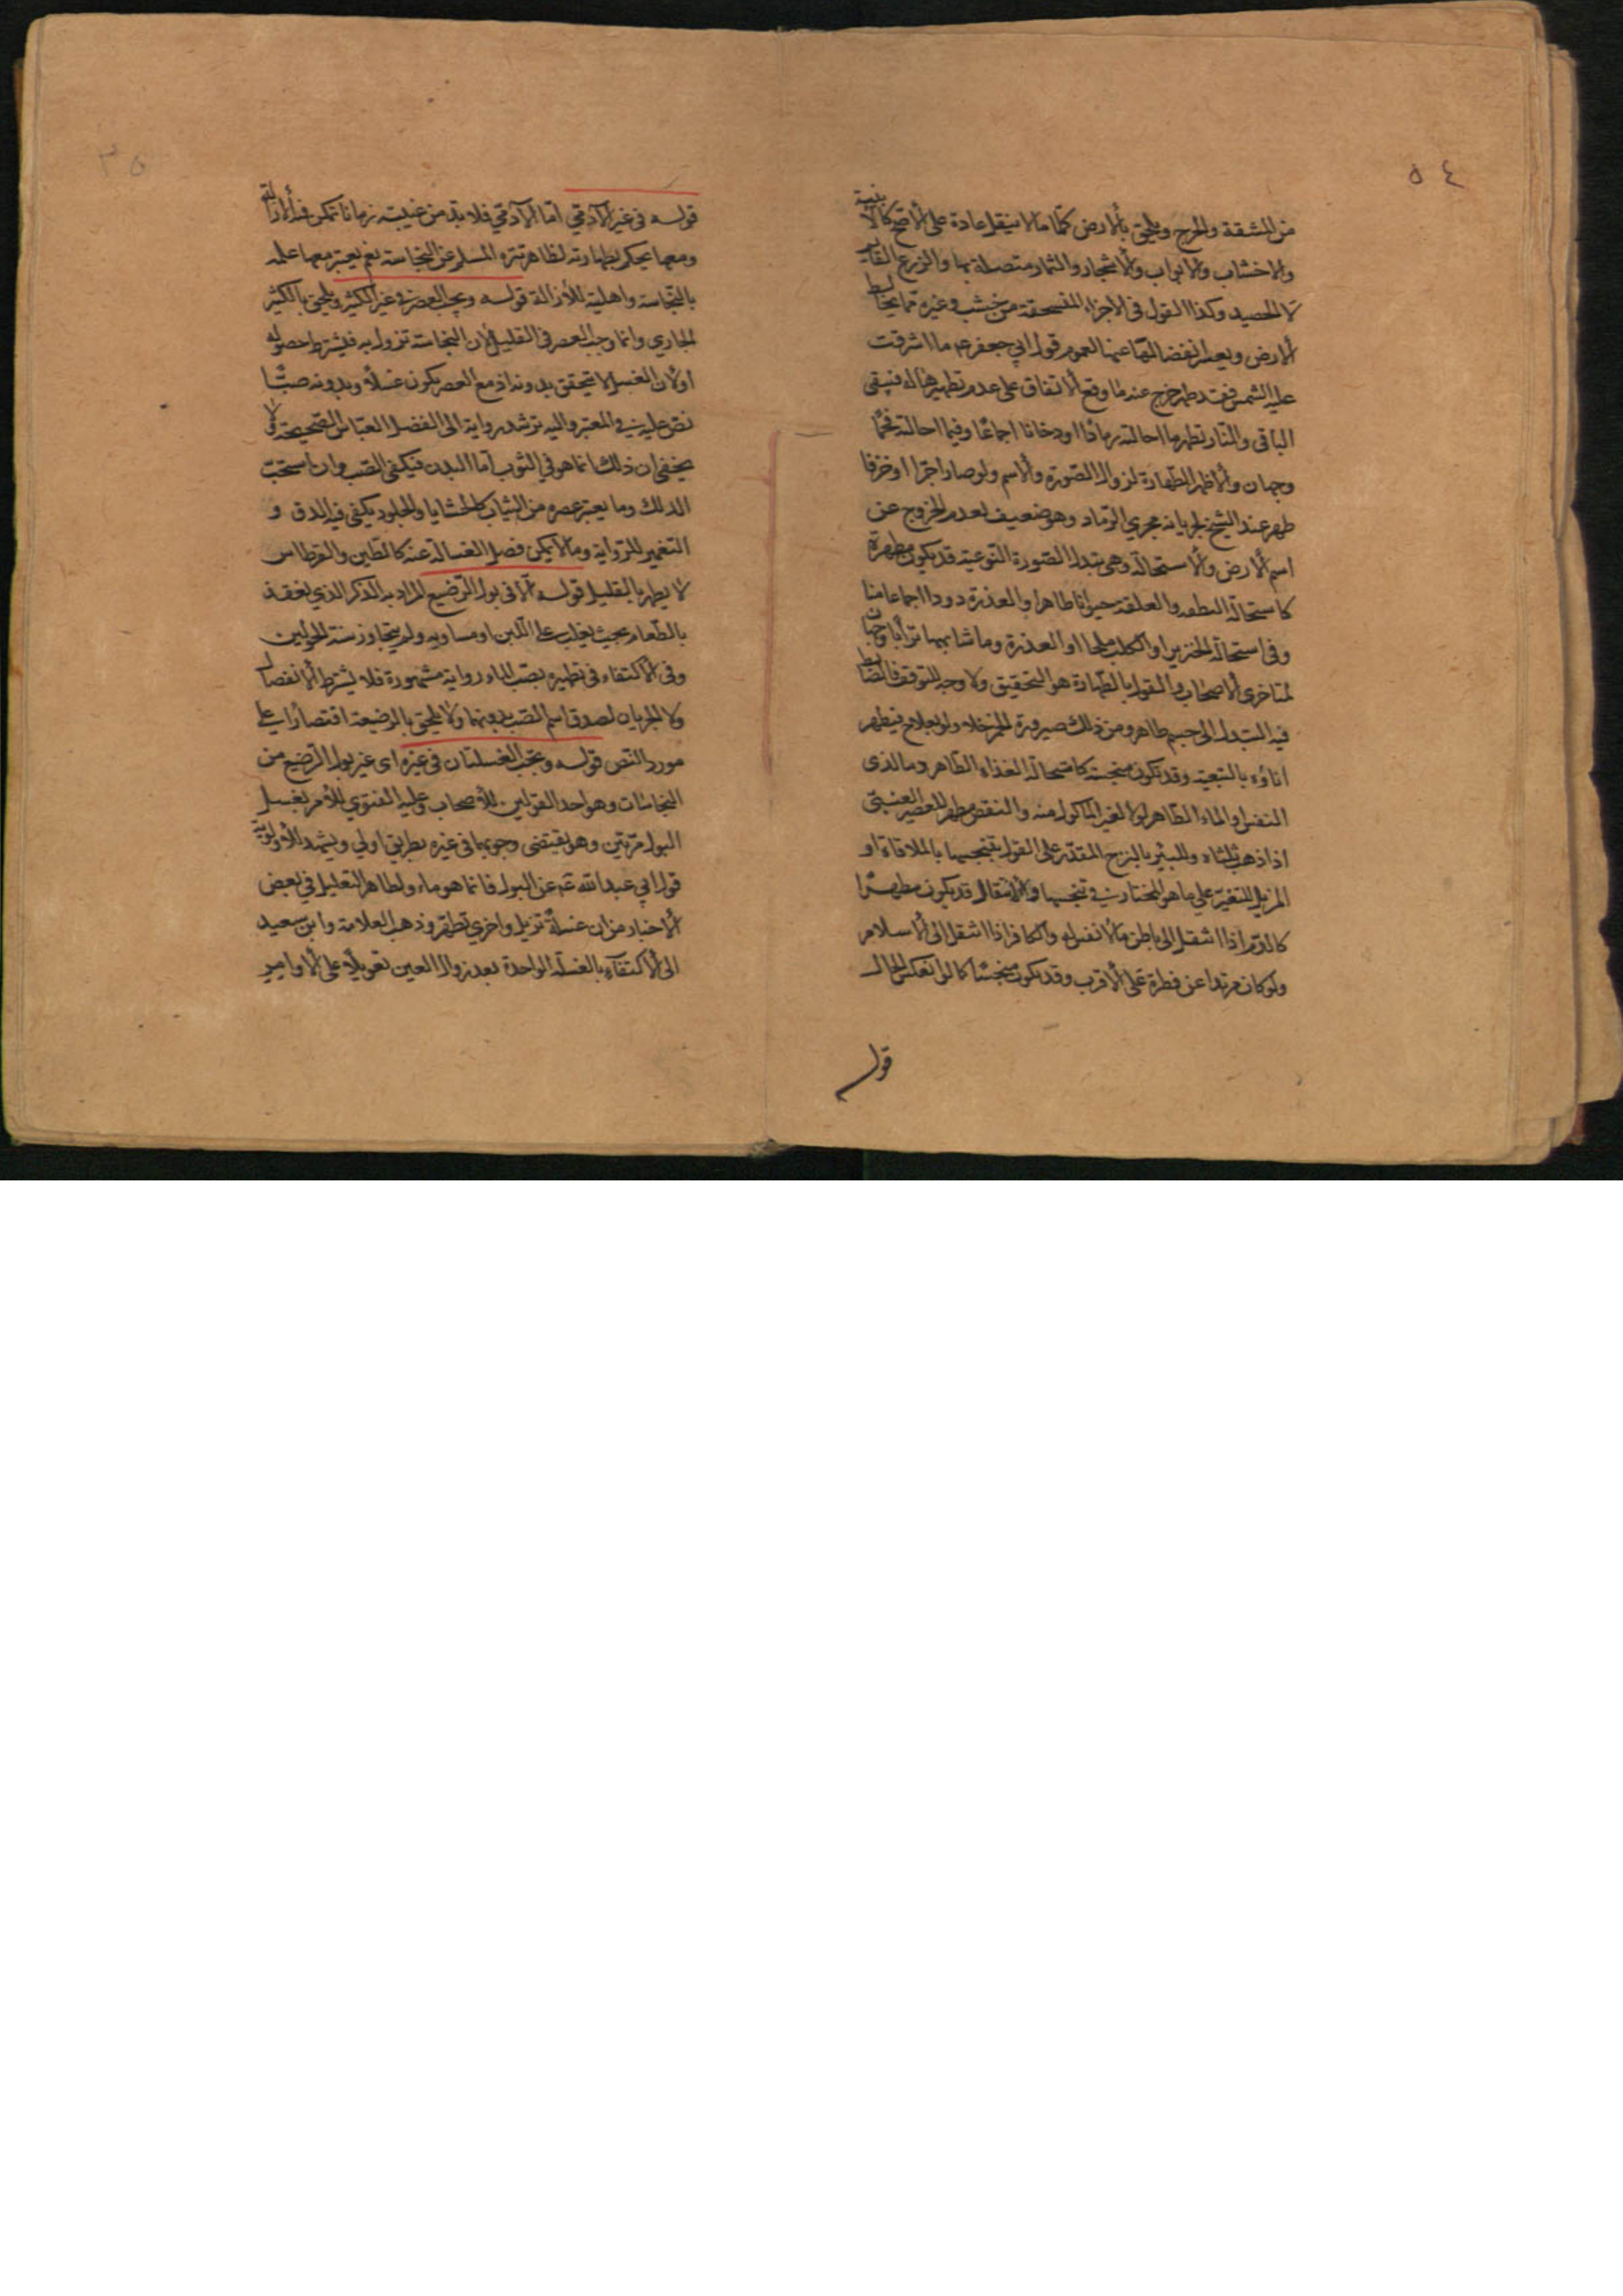 ٥٤
من المشقة والحرج ويلحق بالأرض كلما لا ينقل عادة على الأصح كالأبنية
والاخشاب والابواب والأشجار والثمار متصلة بها والزرع القائم
لا الحصيد وكذا القول في الاجزاء المنسحقة من خشب وغيره مما يخالط
الأرض ويعسر انفصالها عنها لعموم قول ابي جعفر عم ما اشرقت
عليه الشمس فقد طهر خرج عنه ما وقع الاتفاق على عدم تطهيرها له فيبقى
الباقي والنار تطهر ما احالته رمادا او دخانا اجماعا وفيما احالته فحما
وجهان والاظهر الطهارة لزوال الصورة والاسم ولو صار اجرا او خزفا
طهر عند الشيخ لجريانه مجري الرماد وهو ضعيف لعدم الخروج عن
اسم الأرض والاستحالة وهي تبدل الصورة النوعية قد يكون مطهرة
كاستحالة النطفه والعلقة حيوانا طاهرا والعذرة دودا اجماعا منا
وفي استحالة الخنزير او الكلب ملحا او العذرة وما شابهها ترابا وجهان
لمتاخري الاصحاب والقول بالطهارة هو التحقيق ولا وجه للتوقف فالضابط
فيه التبدل الى جسم طاهر ومن ذلك صيرورة الخمر خلا ولو بعلاج فيطهر
اناؤه بالتبعية وقد تكون منجسة كاستحالة الغذاء الطاهر وما لذي
النفس او الماء الطاهر بولا لغير الماكول منه والنقص مطهر للعصير العنبي
اذا ذهب ثلثاه وللبئر بالنزح المقدر على القول بتنجيسها بالملاقاة او
المزيل للتغير على ما هو المختار في تنجيسها والانتقال قد يكون مطهرا
كالدم اذا انتقل الى باطن ما لا نفس له والكافر اذا انتقل الى الاسلام
ولو كان مرتدا عن فطرة على الأقرب وقد يكون منجسا كما لو انعكس الحال
قوله
٣٥
قوله في غير الآدمي اما الآدمي فلا بد من غيبته زمانا تمكن فيه الازالة
ومعها يحكم بطهارته لظاهر تنزه المسلم عن النجاسة نعم يعتبر معها علمه
بالنجاسة واهلية للأزالة قوله ويجب العصر في غير الكثير ويلحق بالكثير
الجاري وانما وجب العصر في القليل لأن النجاسة تزول به فيشترط حصوله
او لأن الغسل لا يتحقق بدونه اذ مع العصر يكون غسلا وبدونه صبا
نص عليه في المعتبر واليه ترشد رواية ابي الفضل العباس الصحيحة ولا
يخفى ان ذلك انما هو في الثوب اما البدن فيكفى الصب وان استحب
الدلك وما يعتبر عصره من الثياب كالحشايا والجلود يكفى فيه الدق و
التغمير للرواية وما لا يمكن فصل الغسالة عنه كالطين والقرطاس
لا يطهر بالقليل قوله الا في بول الرضيع المراد به الذكر الذي لم يغتذ
بالطعام بحيث يغلب على اللبن او مساويه ولم يتجاوز سنة الحولين
وفي الاكتفاء في تطهيره بصب الماء رواية مشهورة فلا يشترط الانفصال
ولا الجريان لصدق اسم الصب بدونهما ولا يلحق بالرضيعة اقتصارا على
مورد النص قوله ويجب الغسلتان في غيره اى غير بول الرضيع من
النجاسات وهو احد القولين للأصحاب وعليه الفتوي للأمر بغسل
البول مرتين وهو يقتضى وجوبها في غيره بطريق اولي ويشهد للأولوية
قول ابي عبد الله عم عن البول فانما هو ماء ولظاهر التعليل في بعض
الأخبار من ان غسلة تزيل واخري تطهر وذهب العلامة وابن سعيد
الى الاكتفاء بالغسلة الواحدة بعد زوال العين تعويلا على الأوامر